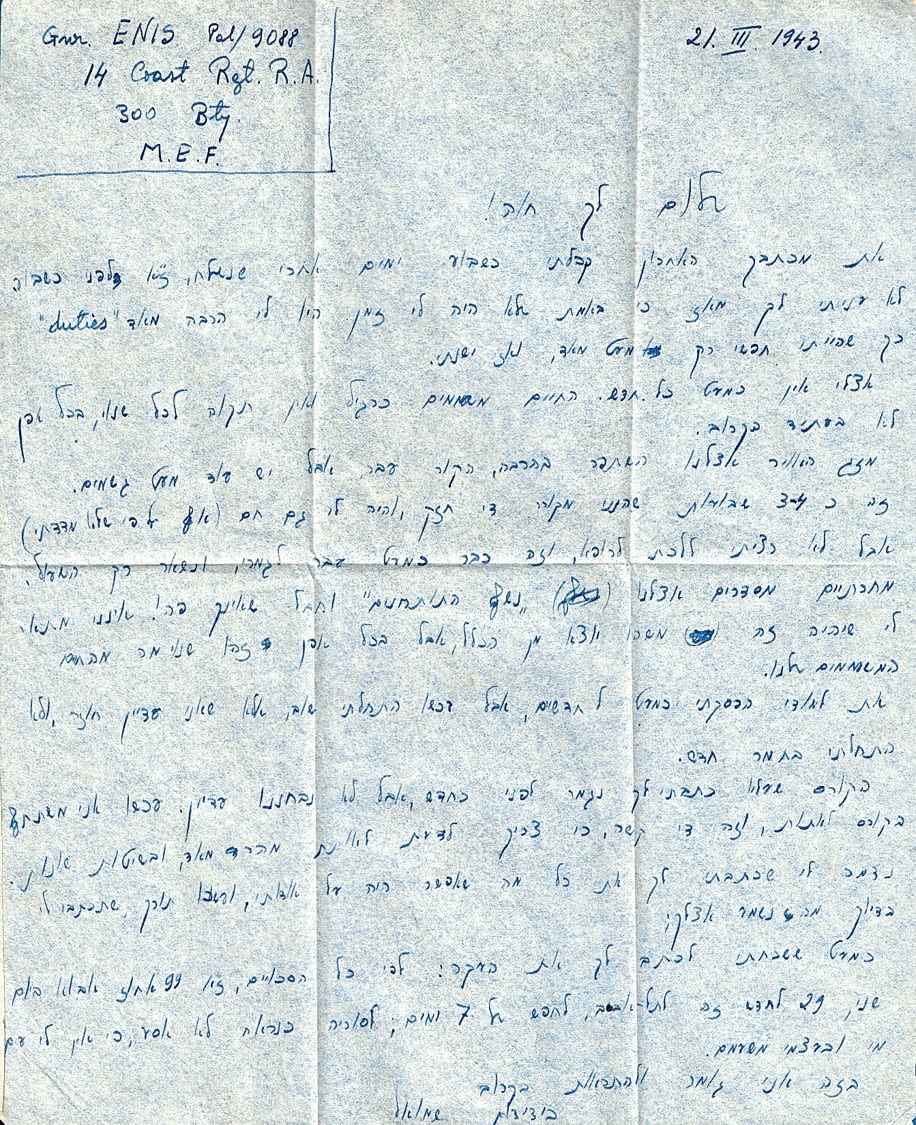 Gnr. ENIS Pal/9088
14 Coast Rgt. R.A.
300 Bty.
M.E.F.
21. III. 1943
שלום לך חוה!
את מכתבך האחרון קבלתי כשבוע ימים אחרי שנשלח, ז"א לפני כשבוע
לא עניתי לך מאז כי באמת לא היה לי זמן היו לי הרבה מאד "duties"
כך שהייתי חפשי רק מעט מאד, ואז ישנתי.
אצלי אין כמעט כל חדש. החיים משעממים כרגיל ואין תקוה לכל שנוי, בכל אפן
לא בעתיד הקרוב.
מזג האויר אצלנו השתפר בהרבה, הקור עבר אבל יש עוד מעט גשמים.
זה כ 3-4 שבועות שהנני מקורר די חזק, והיה לי גם חם (אף על פי שלא מדדתי)
אבל לא רציתי ללכת לרופא, וזה כבר כמעט עבר לגמרי, ונשאר רק השעול.
מחרתיים מסדרים אצלנו "נשף התותחנים" וחבל שאינך פה! אינני מתאר
לי שיהיה זה משהו יוצא מן הכלל, אבל בכל אפן זהו שנוי מה מהחיים
המשעממים שלנו.
את למודי הפסקתי כמעט ל חדשים, אבל עכשו התחלתי שוב, אלא שאני עדיין חוזר, ולא
התחלתי בחמר חדש.
הקורס שעליו כתבתי לך נגמר לפני כחדש, אבל לא נבחננו עדיין. עכשו אני משתתף
בקורס לאתות, וזה די קשה, כי צריך לדעת לאותת מהר מאד, ובשיטות שונות.
נדמה לי שכתבתי לך את כל מה שאפשר היה על אודותי, ועכשו תורך, שתכתבי לי
בדיוק מה נשמע אצלך,
כמעט ששכחתי לכתב לך את העקר: לפי כל הסכויים, ז"א 99 אחוז אבוא ביום
שני, 29 לחדש זה לתל-אביב, לחפש של 7 ימים; לסוריה כנראה לא אסע, כי אין לי עם
מי ובעצמי משעמם.
בזה אני גומר ולהתראות בקרוב
בידידות שמואל